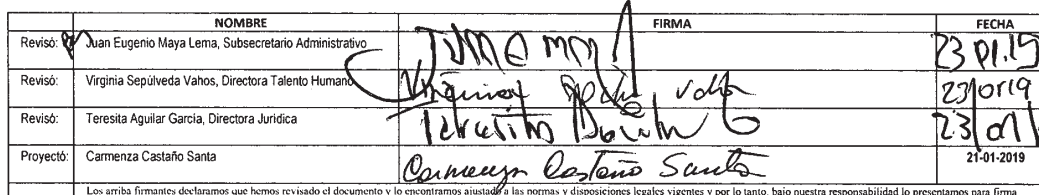 NOMBRE FIRMA FECHA
Revisó: Juan Eugenio Maya Lema, Subsecretario Administrativo 23 01.19
Revisó: Virginia Sepúlveda Vahos, Directora Talento Humano Virginia Vahos 23/01/19
Revisó: Teresita Aguilar García, Directora Jurídica Teresita 23/01/
Proyectó: Carmenza Castaño Santa Carmenza Castaño Santa 21-01-2019
Los arriba firmantes declaramos que hemos revisado el documento y lo encontramos ajustado a las normas y disposiciones legales vigentes y por lo tanto, bajo nuestra responsabilidad lo presentamos para firma